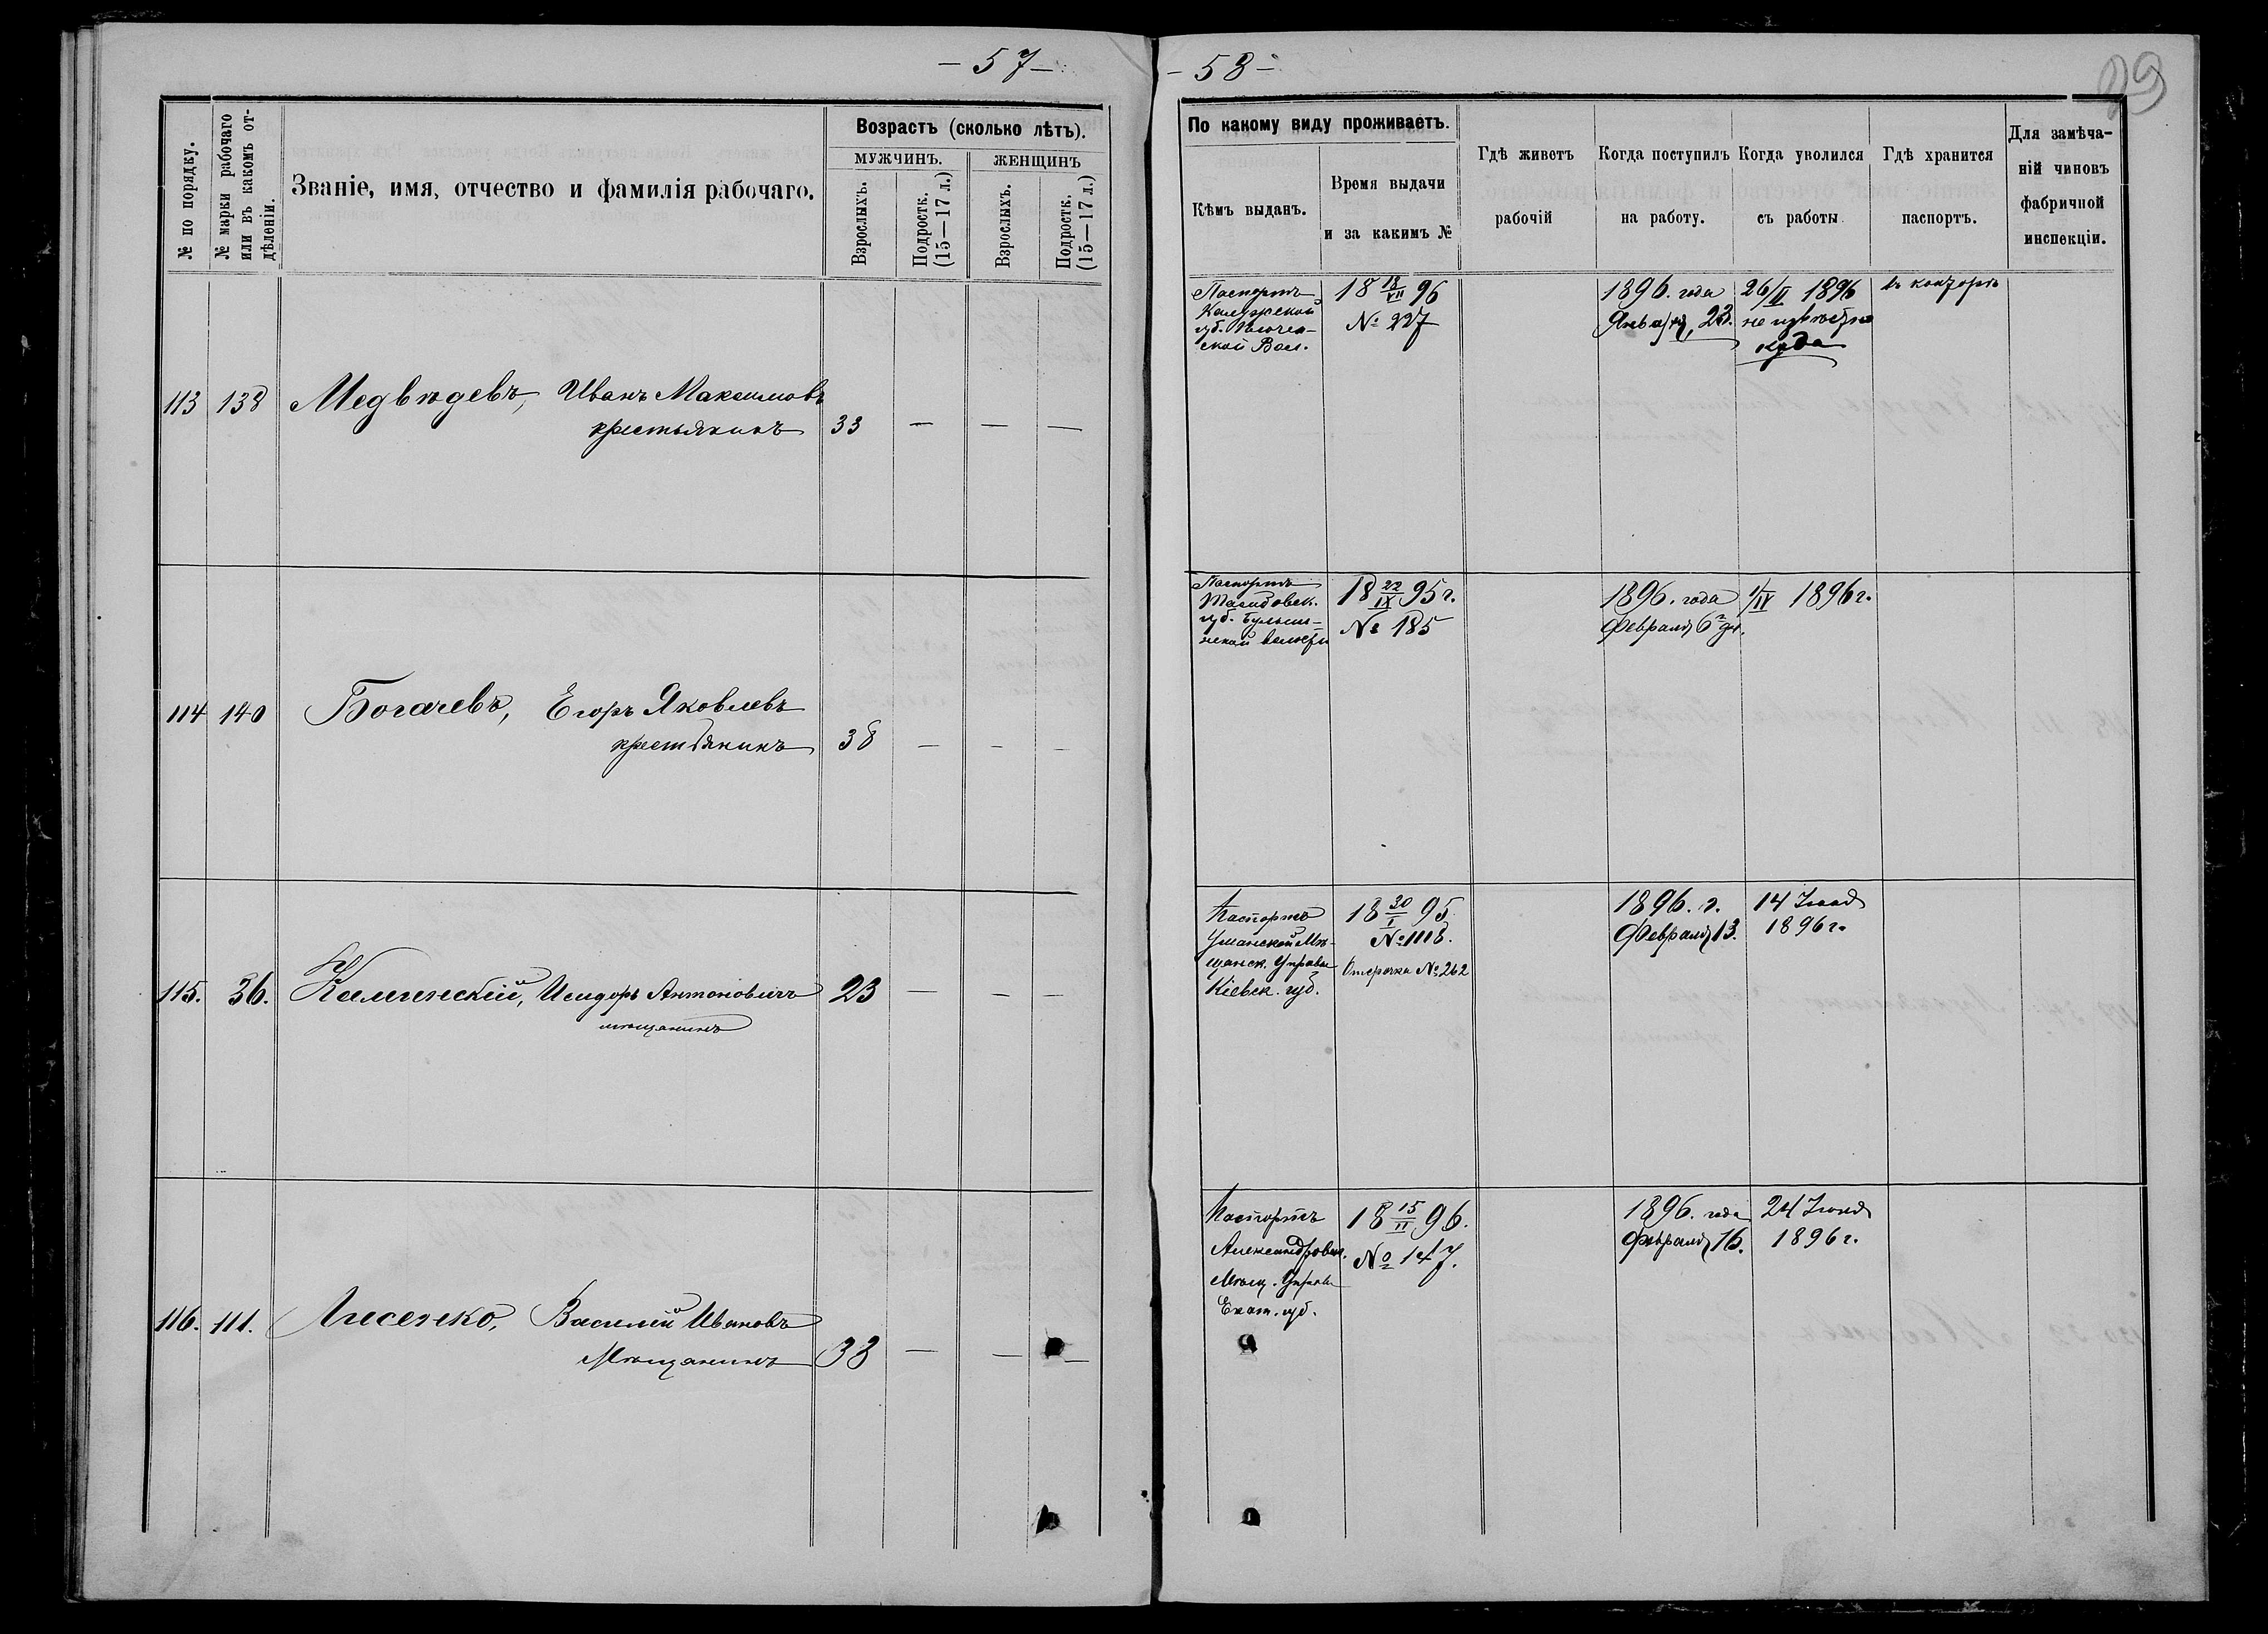 — 57 —
№ по порядку.
№ марки рабочаго или въ какомъ от-
дѣленіи.
Званіе, имя, отчество и фамилія рабочаго.
Возрастъ (сколько лѣтъ).
МУЖЧИНЪ.
ЖЕНЩИНЪ
Взрослыхъ.
Подростк.
(15—17 л.)
Взрослыхъ.
Подростк.
(15—17 л.)
113 138 Медвѣдевъ, Иванъ Максимовъ
крестьянинъ 33 — — —
114 140 Богачевъ, Егоръ Яковлевъ
крестьянинъ 38 — — —
115. 36. Калинскій, Исидоръ Антоновичъ 23 — — —
мѣщанинъ
116. 111. Лисенко, Василій Ивановъ
Мѣщанинъ 38 — — —
— 58 —
По какому виду проживаетъ.
Кѣмъ выданъ.
Время выдачи
и за какимъ №
Гдѣ живетъ
рабочій
Когда поступилъ
на работу.
Когда уволился
съ работы
Гдѣ хранится
паспортъ.
Для замѣча-
ній чиновъ
фабричной
инспекціи.
Паспортъ
Калужской
губ.
ской Вол.
18 18/VII 96
№ 227
1896. года
Января, 23.
26/II 1896
не извѣстно
куда
въ конторѣ
Паспортъ
губ.
18 22/IX 95 г.
№ 185
1896. года
Февраля 6
1/IV 1896 г.
Паспортъ
Уманской Мѣ-
щанск. Управы
Кіевск. губ.
18 30/I 95
№ 1118.
Отсрочка № 262
1896. г.
Февраля 13.
14 Іюля
1896 г.
Паспортъ
Александровск.
Мѣщ. Управы
Екат. губ.
18 15/II 96.
№ 147.
1896. года
Февраля 16.
24 Іюня
1896 г.